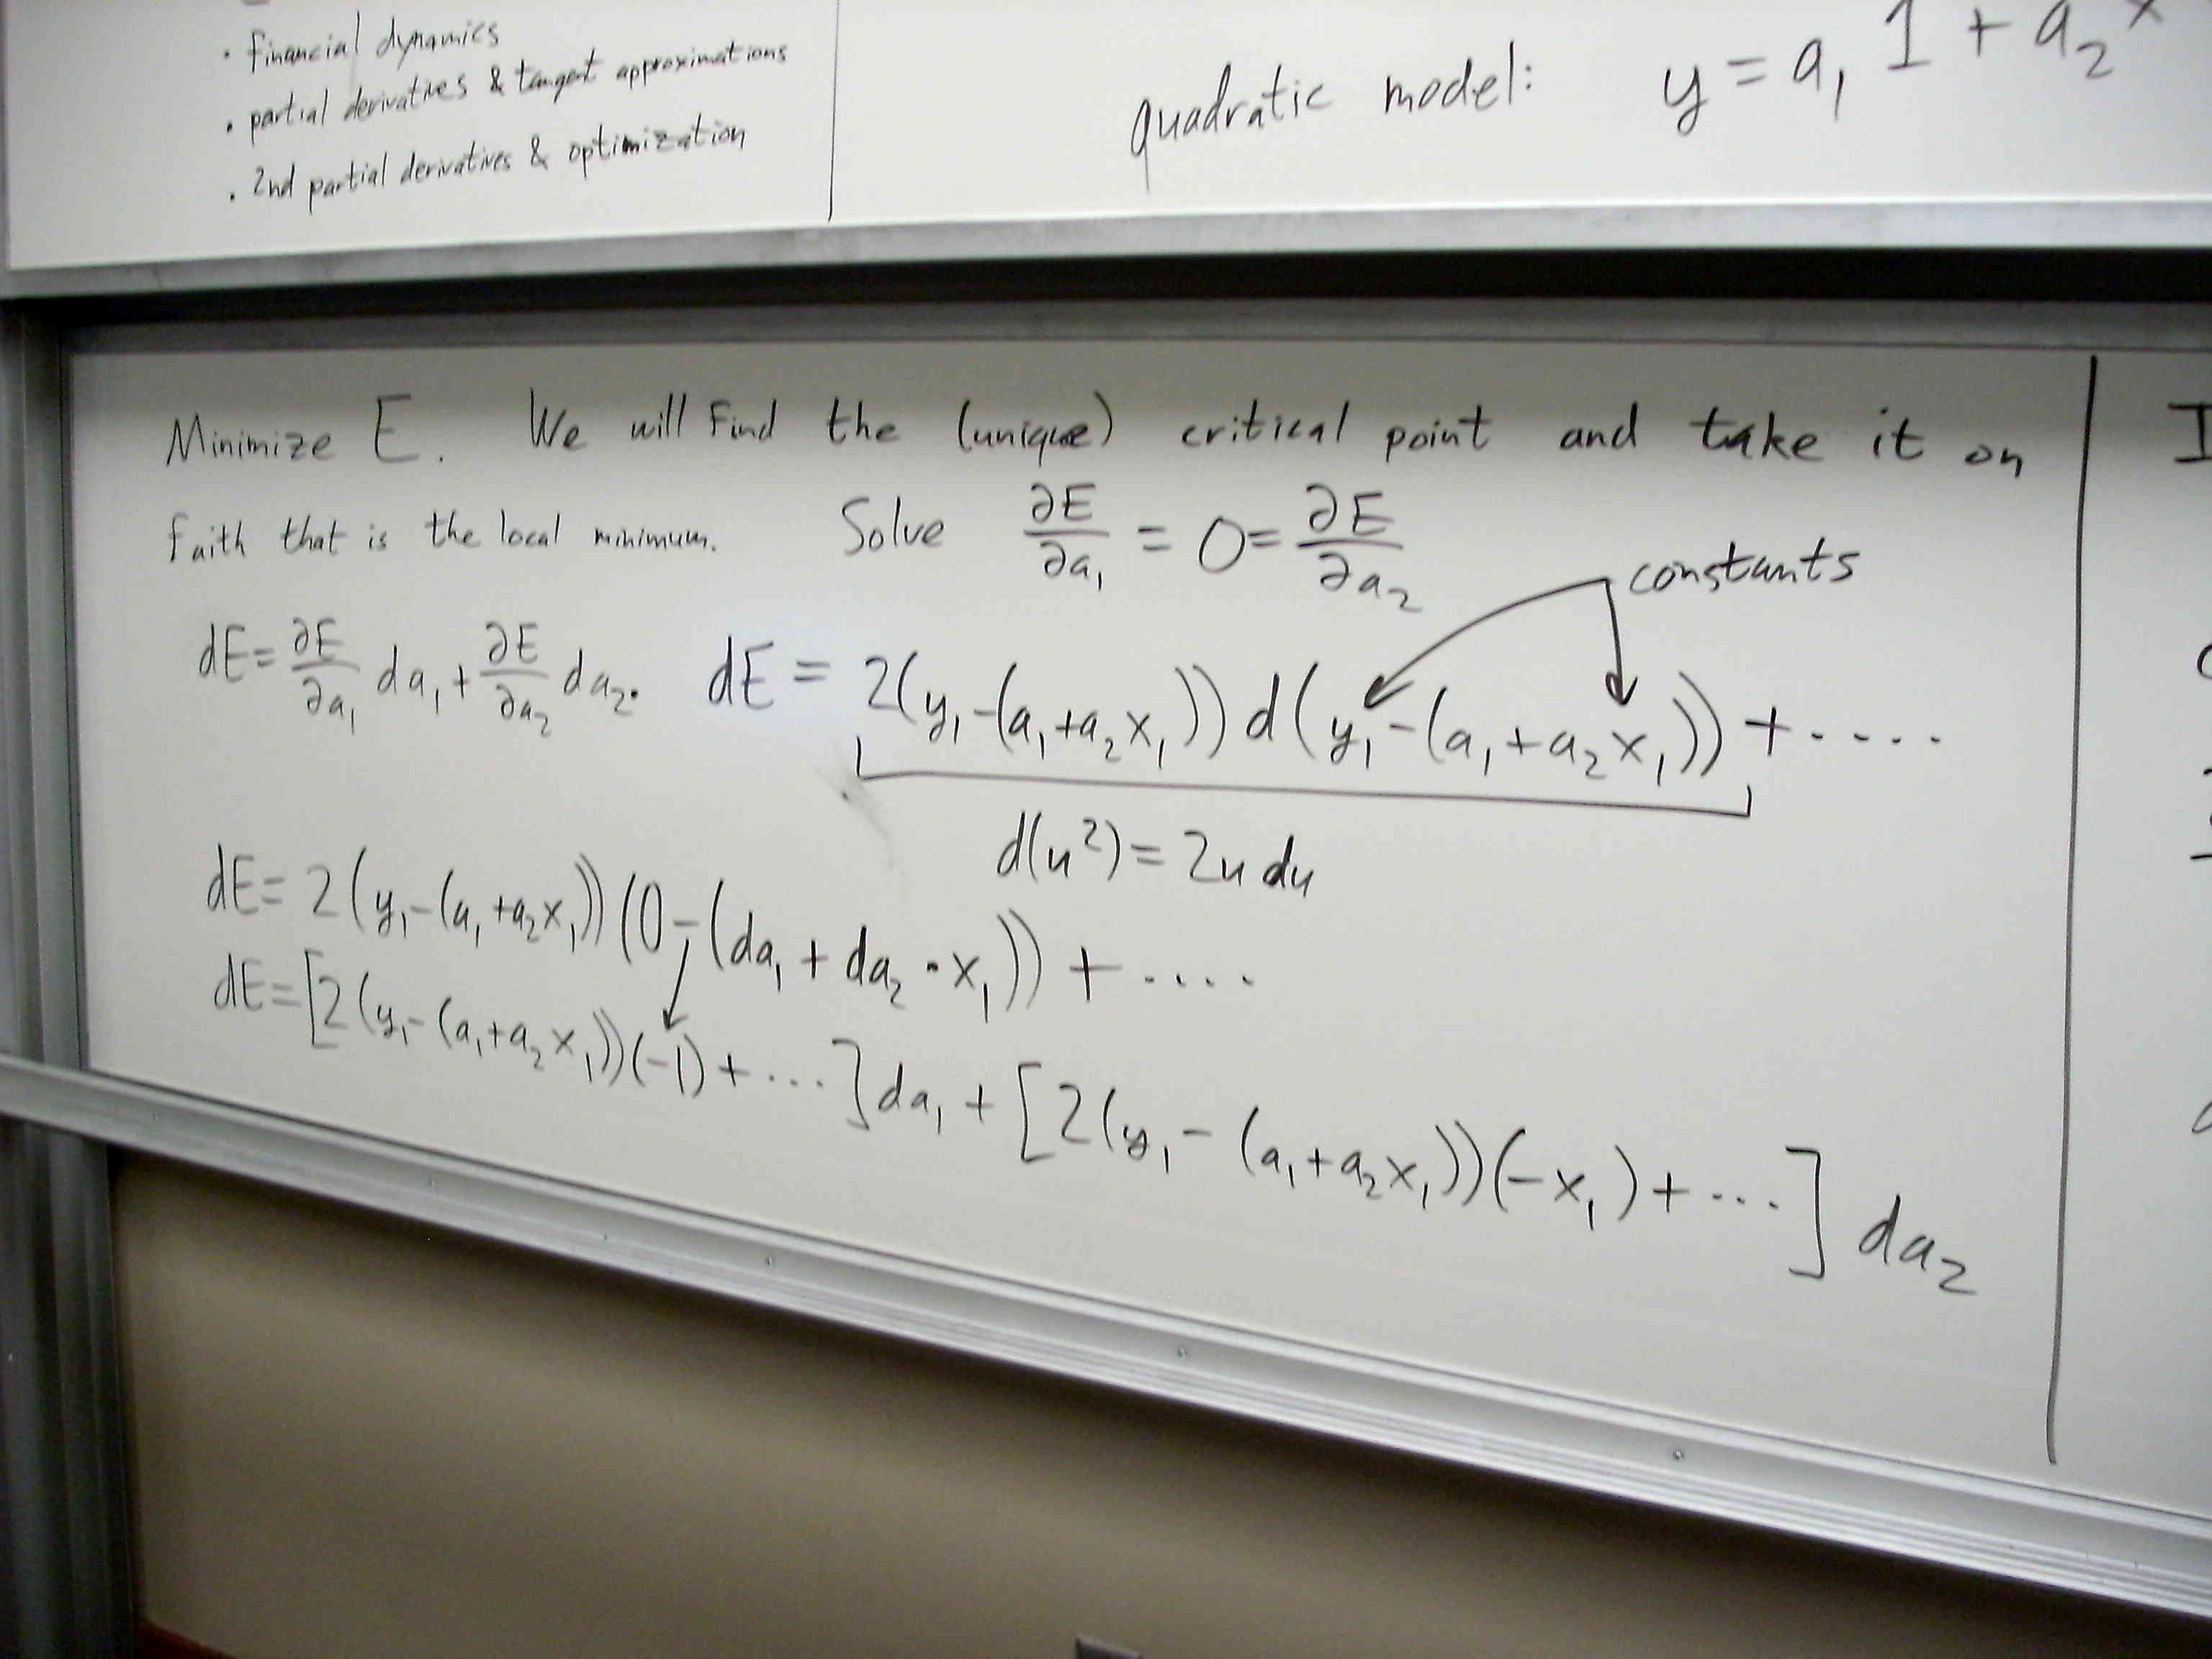 • Financial dynamics
• partial derivatives & tangent approximations
• 2nd partial derivatives & optimization
quadratic model: y = a₁ 1 + a₂ x
Minimize E. We will Find the (unique) critical point and take it on
faith that is the local minimum. Solve ∂E/∂a₁ = 0 = ∂E/∂a₂
constants
dE = ∂E/∂a₁ da₁ + ∂E/∂a₂ da₂. dE = 2(y₁-(a₁+a₂x₁)) d(y₁-(a₁+a₂x₁)) + ....
d(u²) = 2u du
dE = 2(y₁-(a₁+a₂x₁))(0-(da₁ + da₂ · x₁)) + ....
dE = [2(y₁-(a₁+a₂x₁))(-1) + ...] da₁ + [2(y₁ - (a₁+a₂x₁))(-x₁) + ...] da₂